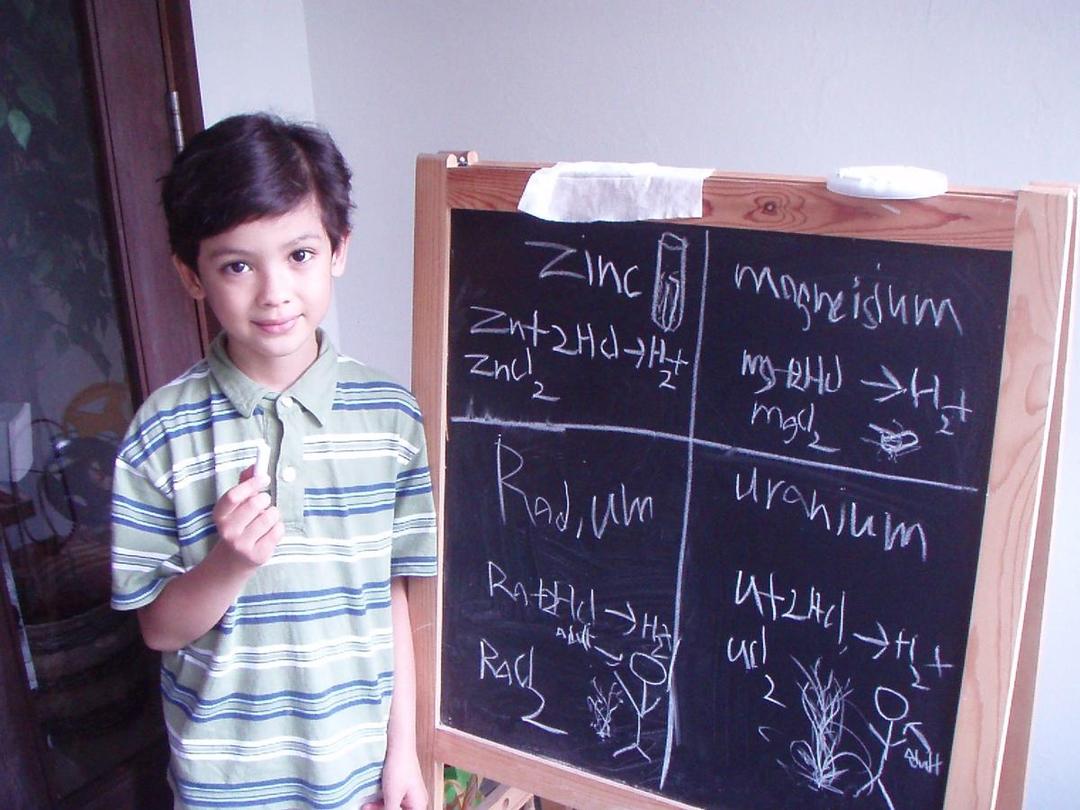 Zinc
Zn+2Hcl→H2+
Zncl2
magneisium
mg+2Hcl →H2+
mgcl2
Radium
Ra+2Hcl→H2+
Adult
Racl2
uranium
u+2Hcl→H2+
ucl2
Adult